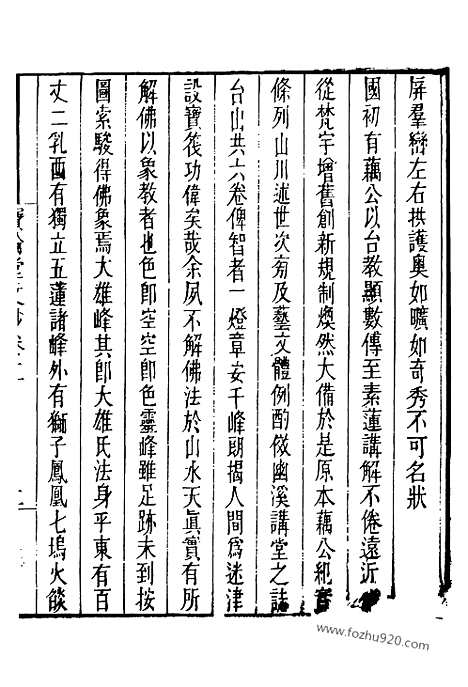 屏羣巒左右拱護奧如曠如奇秀不可名狀
國初有藕公以台教顯數傳至素蓮講解不倦遠近
從梵宇增舊創新規制煥然大備於是原本藕公紀
條列山川述世次旁及藝文體例酌倣幽溪講堂之誌
台山共六卷俾智者一燈章安千峰朗揭人間爲迷津
設寶筏功偉矣哉余夙不解佛法於山水天眞實有所
解佛以象教者也色卽空空卽色靈峰雖足跡未到按
圖索駿得佛象焉大雄峰其卽大雄氏法身平東有百
丈二乳西有獨立五蓮諸峰外有獅子鳳凰七塢火燄
www.fozhu920.com